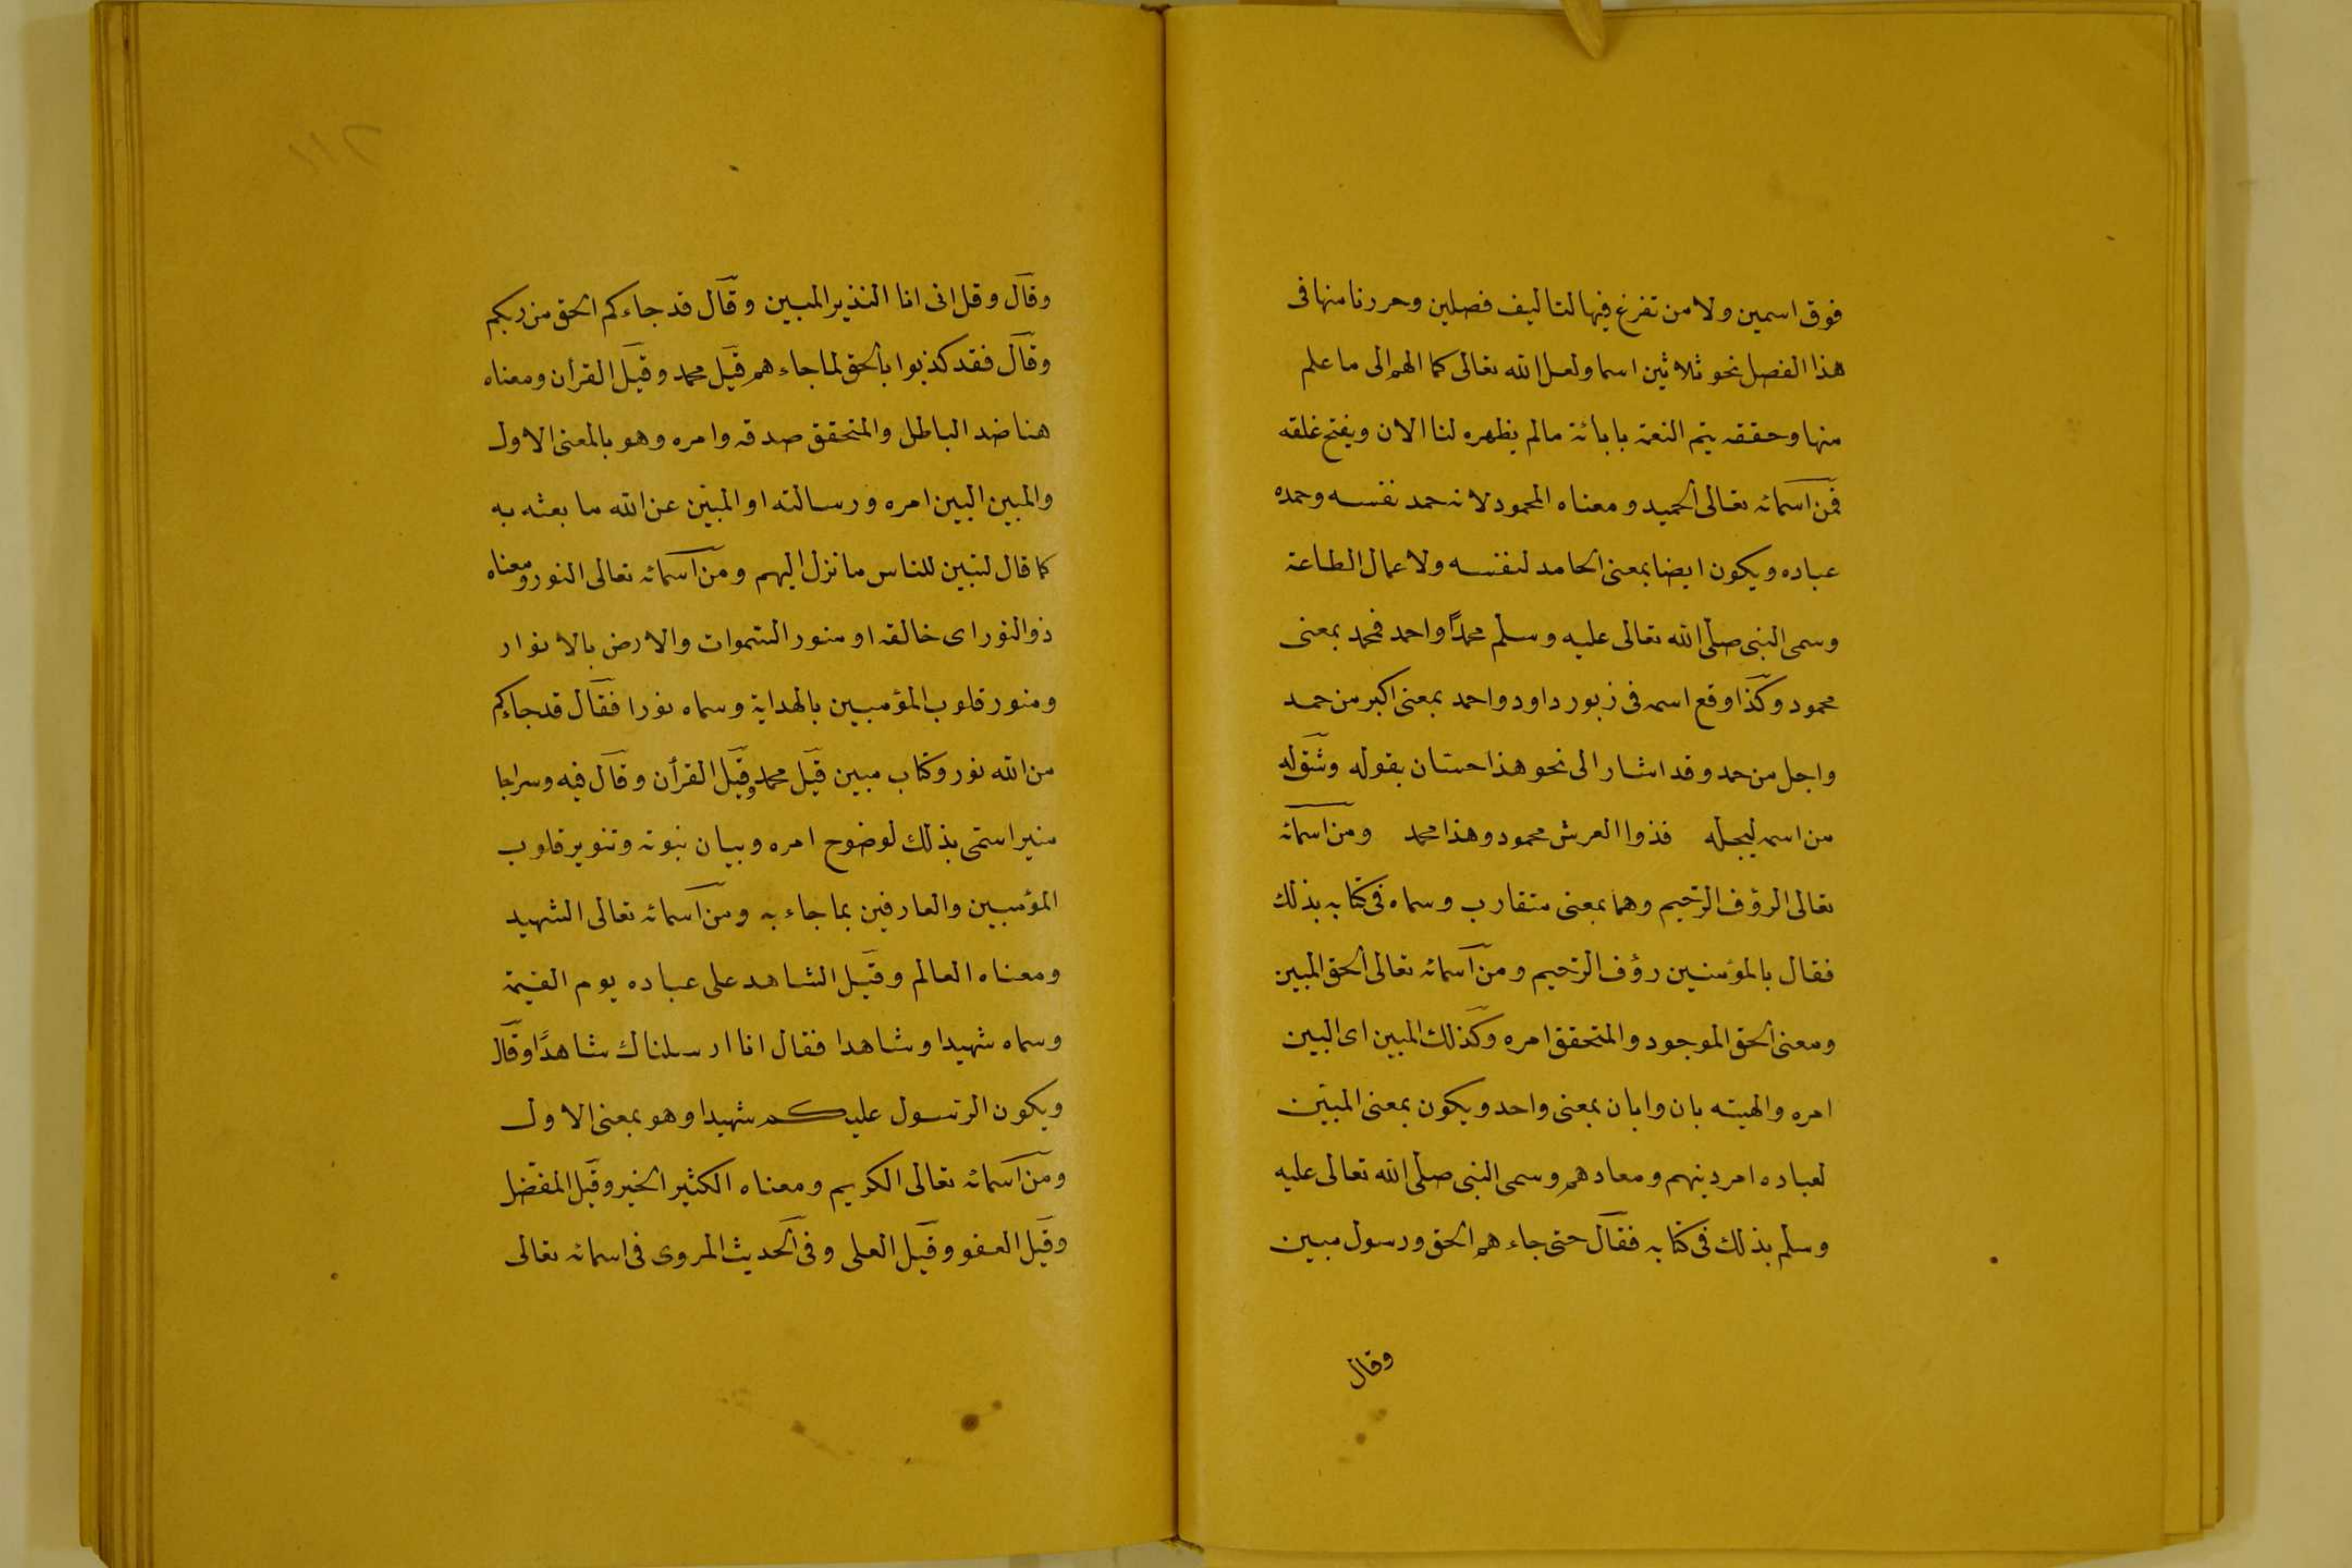 فوق اسمين ولا من تفرغ فيها لتاليف فصلين وحررنا منها فى
هذا الفصل نحو ثلاثين اسما ولعل الله تعالى كما الهم الى ما علم
منها وحققه يتم النعمة بابانة مالم يظهره لنا الان ويفتح غلقه
فمن اسمائه تعالى الحميد ومعناه المحمود لانه حمد نفسه وحمده
عباده ويكون ايضا بمعنى الحامد لنفسه ولاعمال الطاعة
وسمى النبى صلى الله تعالى عليه وسلم محمدًا واحمد فمحمد بمعنى
محمود وكذا وقع اسمه فى زبور داود واحمد بمعنى اكبر من حمد
واجل من حمد وقد اشار الى نحو هذا حسان بقوله وشق له
من اسمه ليجله فذوا العرش محمود وهذا محمد ومن اسمائه
تعالى الرؤف الرحيم وهما بمعنى متقارب وسماه فى كتابه بذلك
فقال بالمؤمنين رؤف الرحيم ومن اسمائه تعالى الحق المبين
ومعنى الحق الموجود والمتحقق امره وكذلك المبين اى البين
امره والهيته بان وابان بمعنى واحد ويكون بمعنى المبين
لعباده امر دينهم ومعادهم وسمى النبى صلى الله تعالى عليه
وسلم بذلك فى كتابه فقال حتى جاءهم الحق ورسول مبين
وقال
٢١١
وقال وقل انى انا النذير المبين وقال قد جاءكم الحق من ربكم
وقال فقد كذبوا بالحق لما جاءهم قيل محمد وقيل القرأن ومعناه
هنا ضد الباطل والمتحقق صدقه وامره وهو بالمعنى الاول
والمبين البين امره ورسالته او المبين عن الله ما بعثه به
كما قال لتبين للناس ما نزل اليهم ومن اسمائه تعالى النور ومعناه
ذو النور اى خالقه او منور السموات والارض بالانوار
ومنور قلوب المؤمبين بالهداية وسماه نورا فقال قد جاءكم
من الله نور وكتاب مبين قيل محمد وقيل القرأن وقال فيه وسراجا
منيرا سمى بذلك لوضوح امره وبيان نبوته وتنوير قلوب
المؤمبين والعارفين بما جاء به ومن اسمائه تعالى الشهيد
ومعناه العالم وقيل الشاهد على عباده يوم القيمة
وسماه شهيدا وشاهدا فقال انا ارسلناك شاهدًا وقال
ويكون الرسول عليكم شهيدا وهو بمعنى الاول
ومن اسمائه تعالى الكريم ومعناه الكثير الخير وقيل المفضل
وقيل العفو وقيل العلى وفى الحديث المروى فى اسمائه تعالى